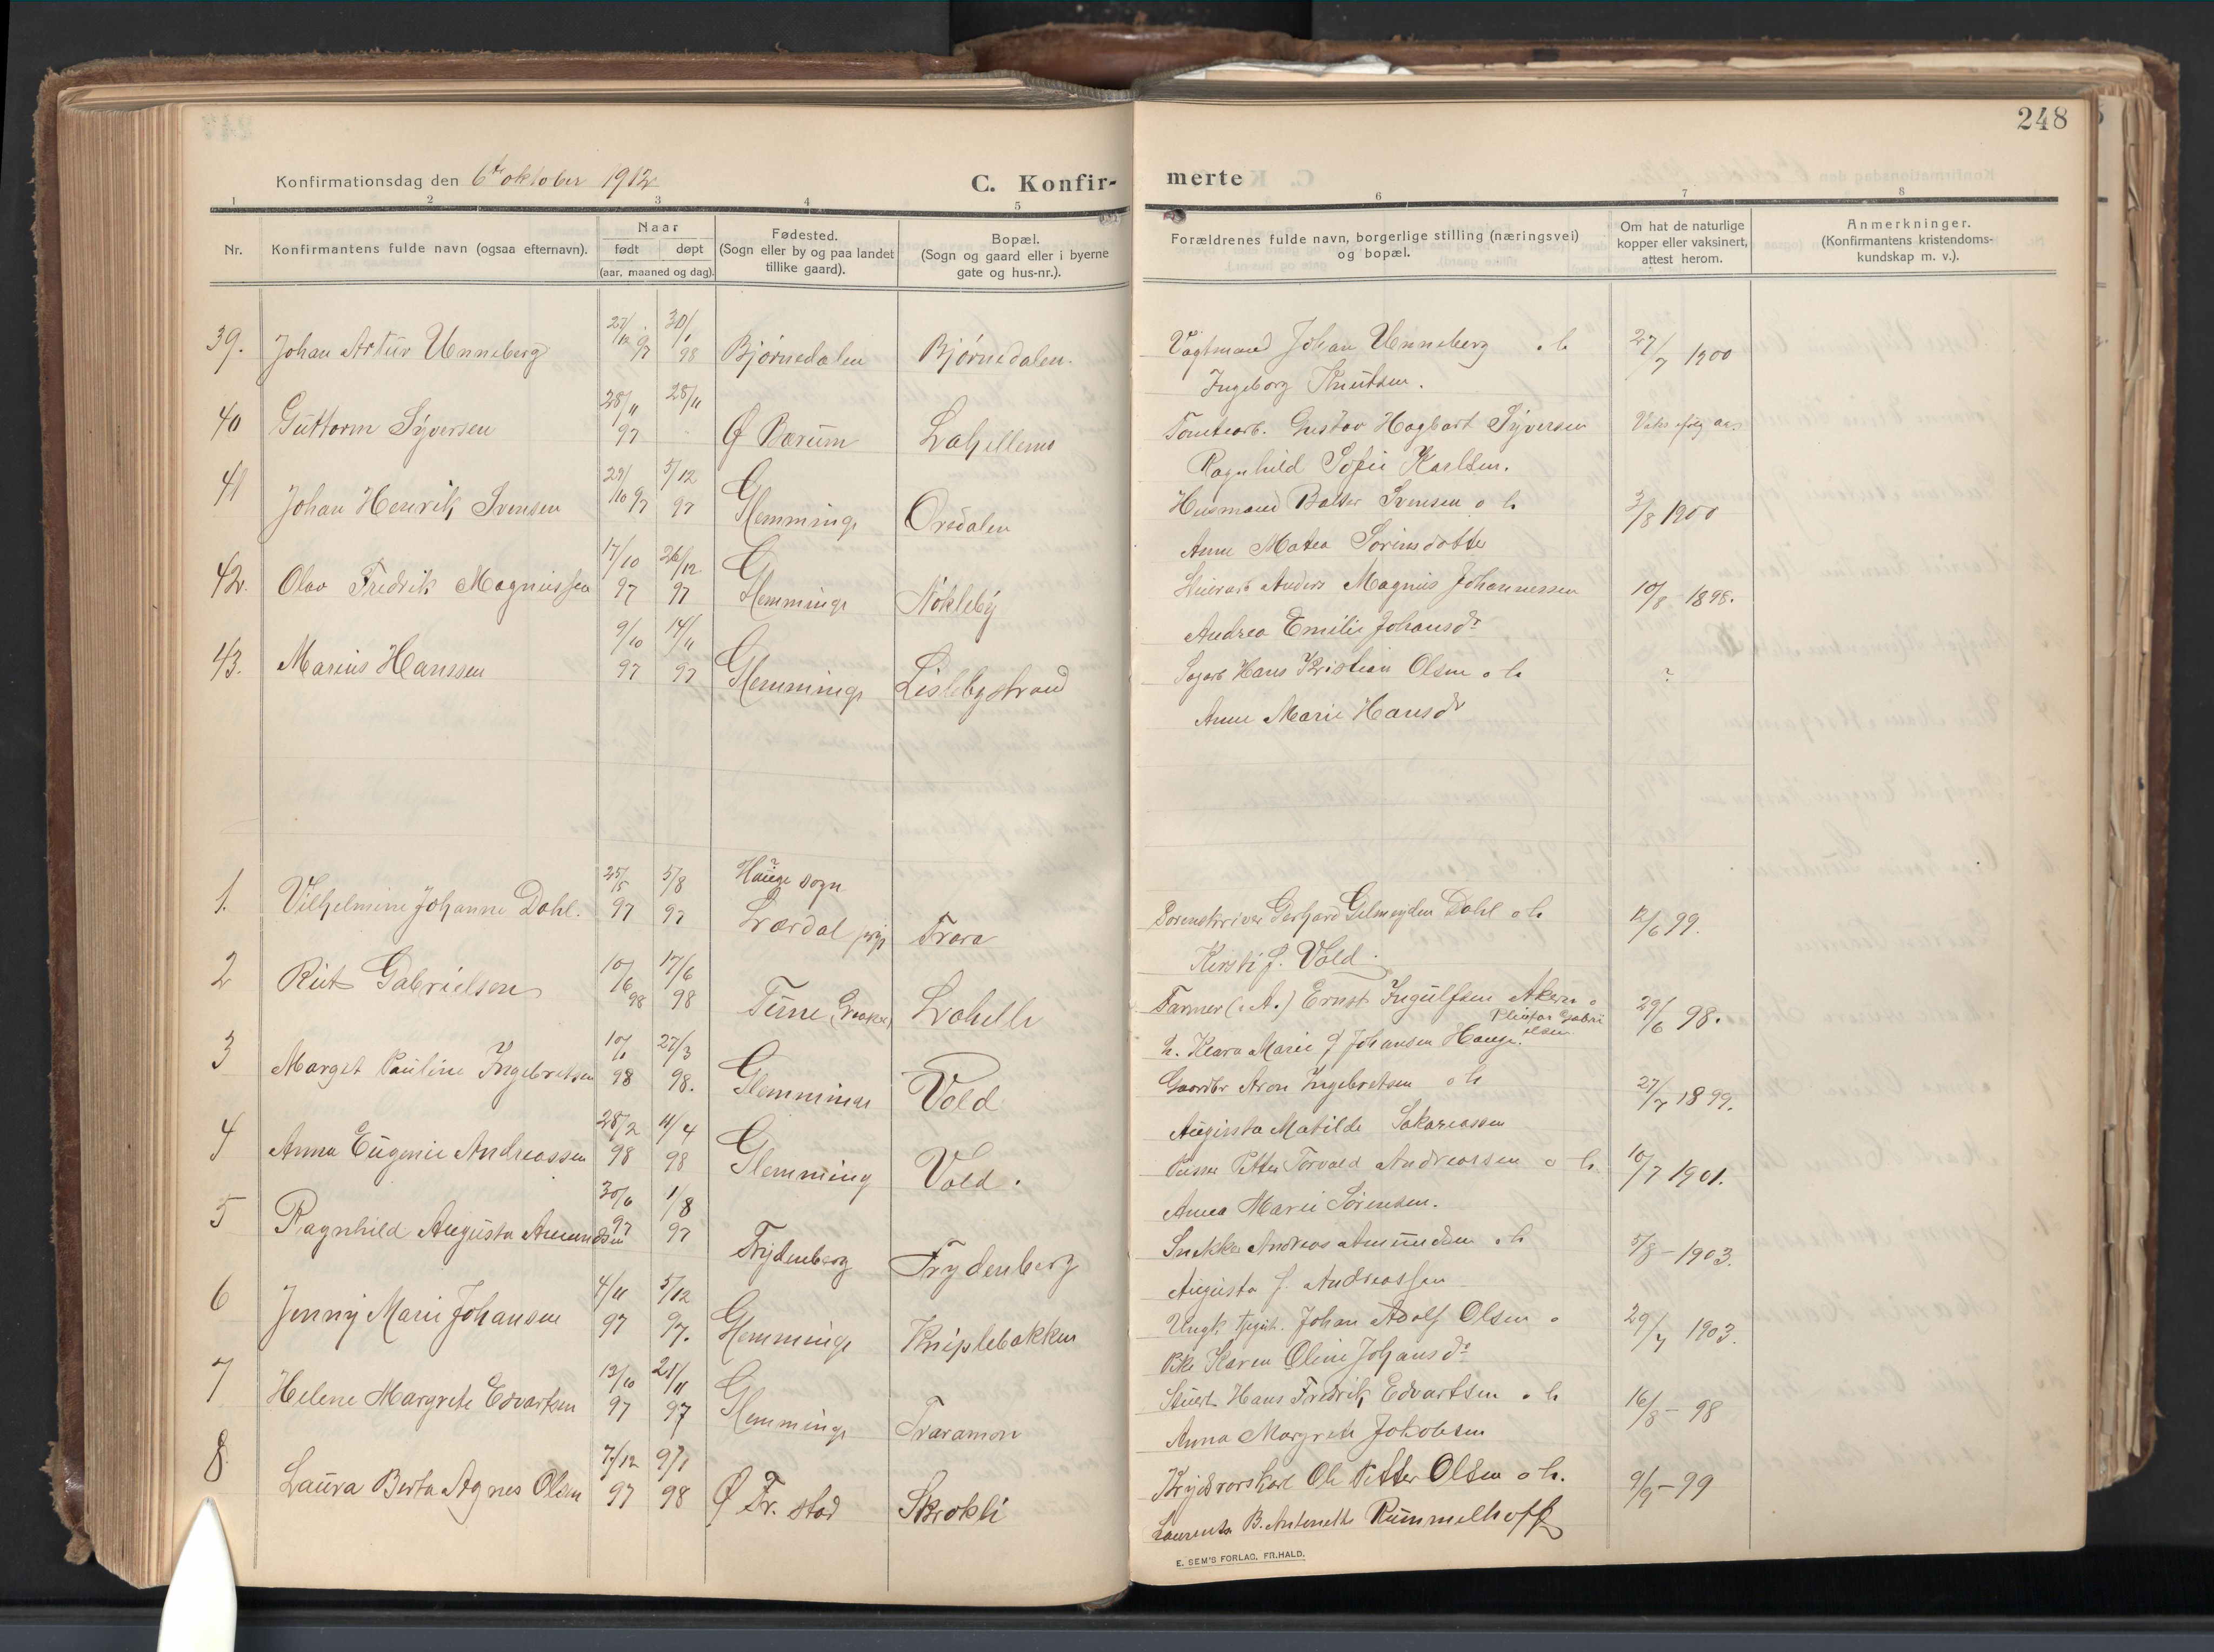 248
Konfirmationsdag den 6te oktober 1912
C. Konfir-
merte
1 2 3 4 5 6 7 8
Nr.
Konfirmantens fulde navn (ogsaa efternavn).
Naar
født døpt
(aar, maaned og dag).
Fødested.
(Sogn eller by og paa landet
tillike gaard).
Bopæl.
(Sogn og gaard eller i byerne
gate og hus-nr.).
Forældrenes fulde navn, borgerlige stilling (næringsvei)
og bopæl.
Om hat de naturlige
kopper eller vaksinert,
attest herom.
Anmerkninger.
(Konfirmantens kristendoms-
kundskap m. v.).
39. Johan Artur Unneberg 27/12 97 30/1 98 Bjørnedalen Bjørnedalen. Vagtmand Johan Unneberg o h 27/7 1900
Ingeborg Knutsen.
40 Guttorm Syversen 28/11 97 28/11 Ø Bærum Lahellemo Tomtearb. Gustav Hagbart Syversen
Ragnhild Sofie Karlsen.
41 Johan Henrik Svensen 29/10 97 5/12 97 Glemminge Oredalen Husmand Balser Svensen o h 3/8 1900
Anne Matea Sørensdatter
42. Olav Fredrik Magnussen 17/10 97 26/12 97 Glemminge Nøkleby Anders Magnus Johannessen 10/8 1898.
Andrea Emilie Johansdr
43. Marius Hanssen 9/10 97 14/11 97 Glemminge Lislebystrand Sagarb Hans Kristian Olsen o h ?
Anne Marie Hansdr
1. Vilhelmine Johanne Dahl. 25/5 97 5/8 97 Hauge sogn
Lærdal prgj Trara Sorenskriver Gerhard Gelmeyden Dahl o h 12/6 99.
Kirsti f. Vold.
2 Rut Gabrielsen 10/6 98 17/6 98 Tune (Greaker) Lahelle Farmer (i A.) Ernst Ingulfsen Akerø o 29/6 98.
h. Klara Marie f Johansen Hauge.
3 Margit Pauline Ingebretsen 10/1 98 27/3 98. Glemminge Vold Gaardbr Aron Ingebretsen o h 27/7 1899.
Augusta Matilde Sakariassen
4 Anna Eugenie Andreassen 28/2 98 11/4 98 Glemming Vold. Pusser Petter Torvald Andreassen o h 10/7 1901.
Anna Marie Sørensen.
5 Ragnhild Augusta Amundsen 30/6 97 1/8 97 Frydenberg Frydenberg Snekker Andreas Amundsen o h 5/8 - 1903.
Augusta f. Andreassen
6 Jenny Marie Johansen 4/11 97 5/12 97. Glemminge Kniplebakken Ungk tjgut. Johan Adolf Olsen o 29/7 1903.
Pike Karen Oline Johansdr
7 Helene Margrete Edvartsen 12/10 97 21/11 97 Glemminge Traramon Stuert Hans Fredrik Edvartsen o h 16/8 - 98
Anna Margrete Jakobsen
8. Laura Berta Agnes Olsen 7/12 97 9/1 98 Ø Fr. stad Skrokli Krydsrorskarl Ole Petter Olsen o h. 9/9 - 99
Laurenta B. Antonette Rummelhoff
E. SEM'S FORLAG, FR.HALD.